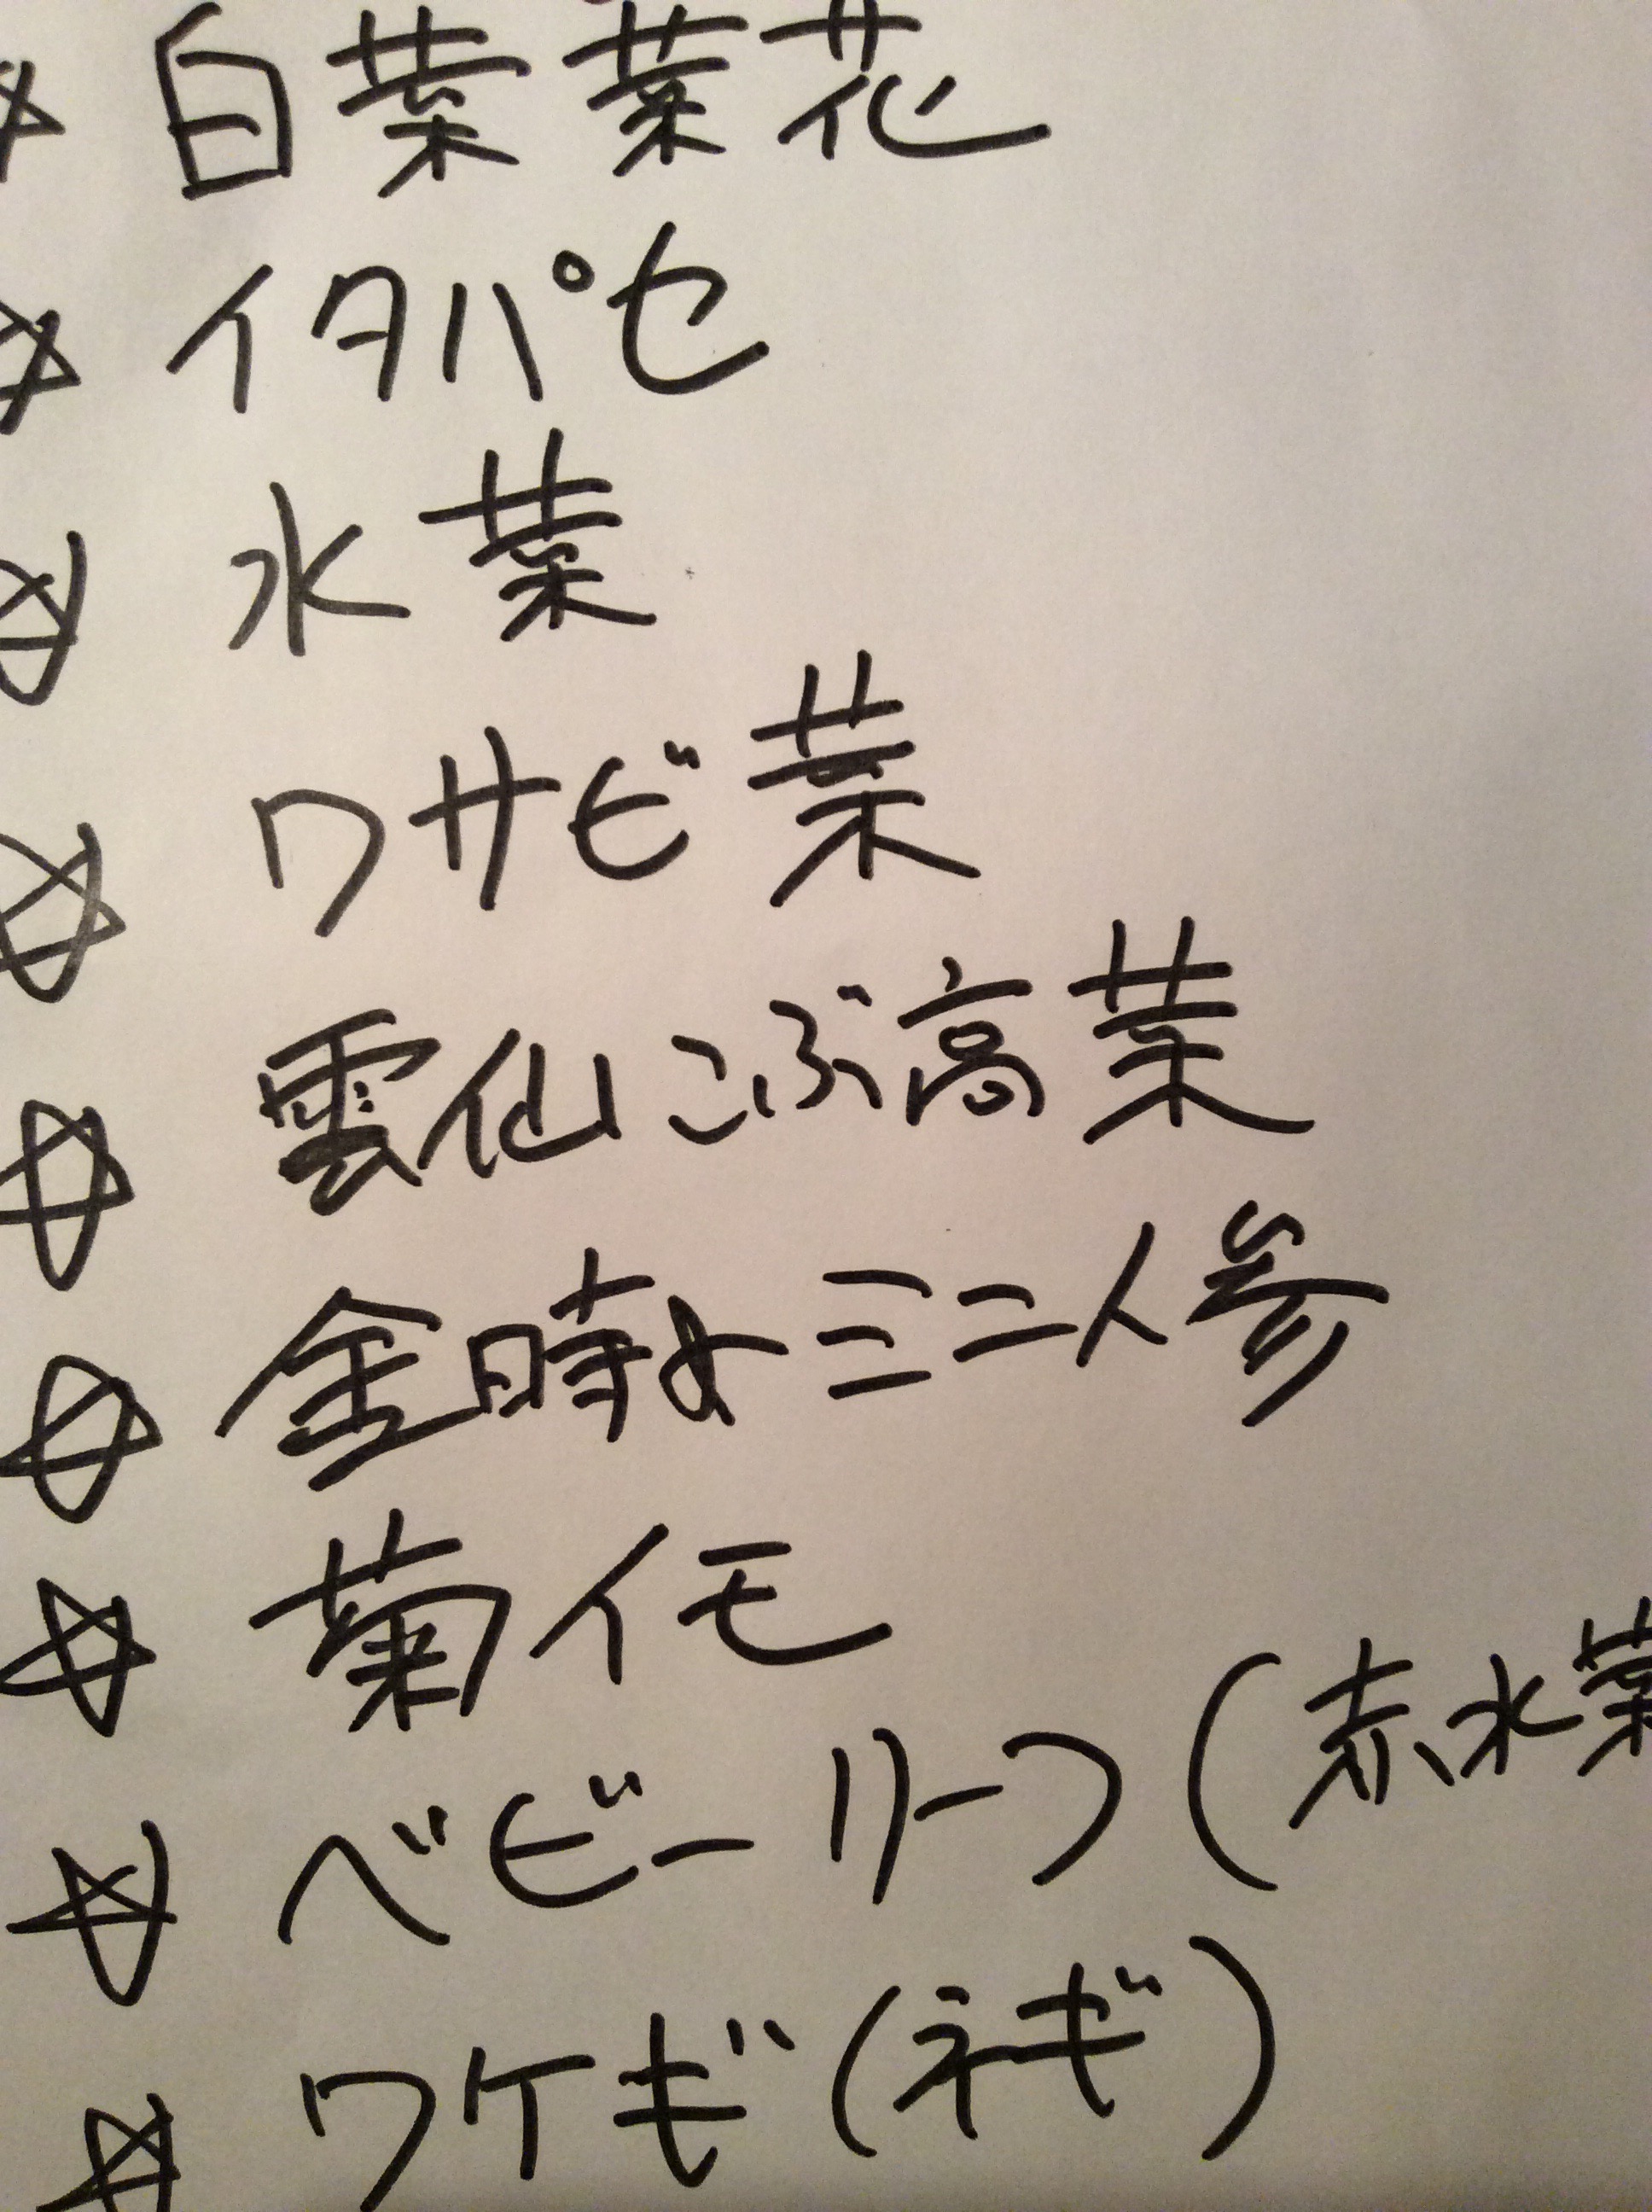 ☆ 白菜菜花
☆ イタパセ
☆ 水菜
☆ ワサビ菜
☆ 雲仙こぶ高菜
☆ 金時ミニ人参
☆ 菊イモ
☆ ベビーリーフ(赤水菜
☆ ワケギ(ネギ)